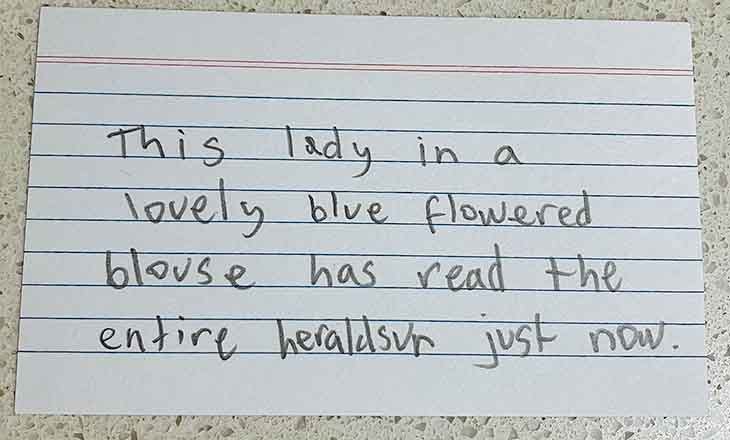 This lady in a
lovely blue flowered
blouse has read the
entire heraldsun just now.